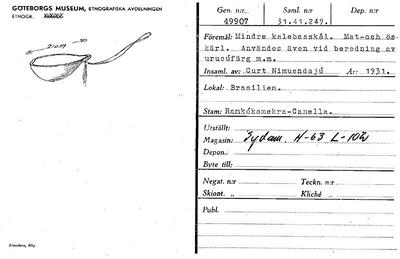 GÖTEBORGS MUSEUM, ETNOGRAFISKA AVDELNINGEN
ETNOGR.
21cm
Elanders, Gbg
Gen. nr:r Saml. n:r Dep. n:r
49907 31.41.249.
Föremål: Mindre kalebasskål. Mat-och ös-
kärl. Användes även vid beredning av
urucúfärg m.m.
Insaml. av: Curt Nimuendajú År: 1931.
Lokal: Brasilien.
Stam: Ramkókamekra-Canella.
Utställt:
Magasin: Sydam. H-63 L-10
Depon.:
Byte till:
Negat. n:r Teckn. n:r
Skiopt. „ Kliché „
Publ.